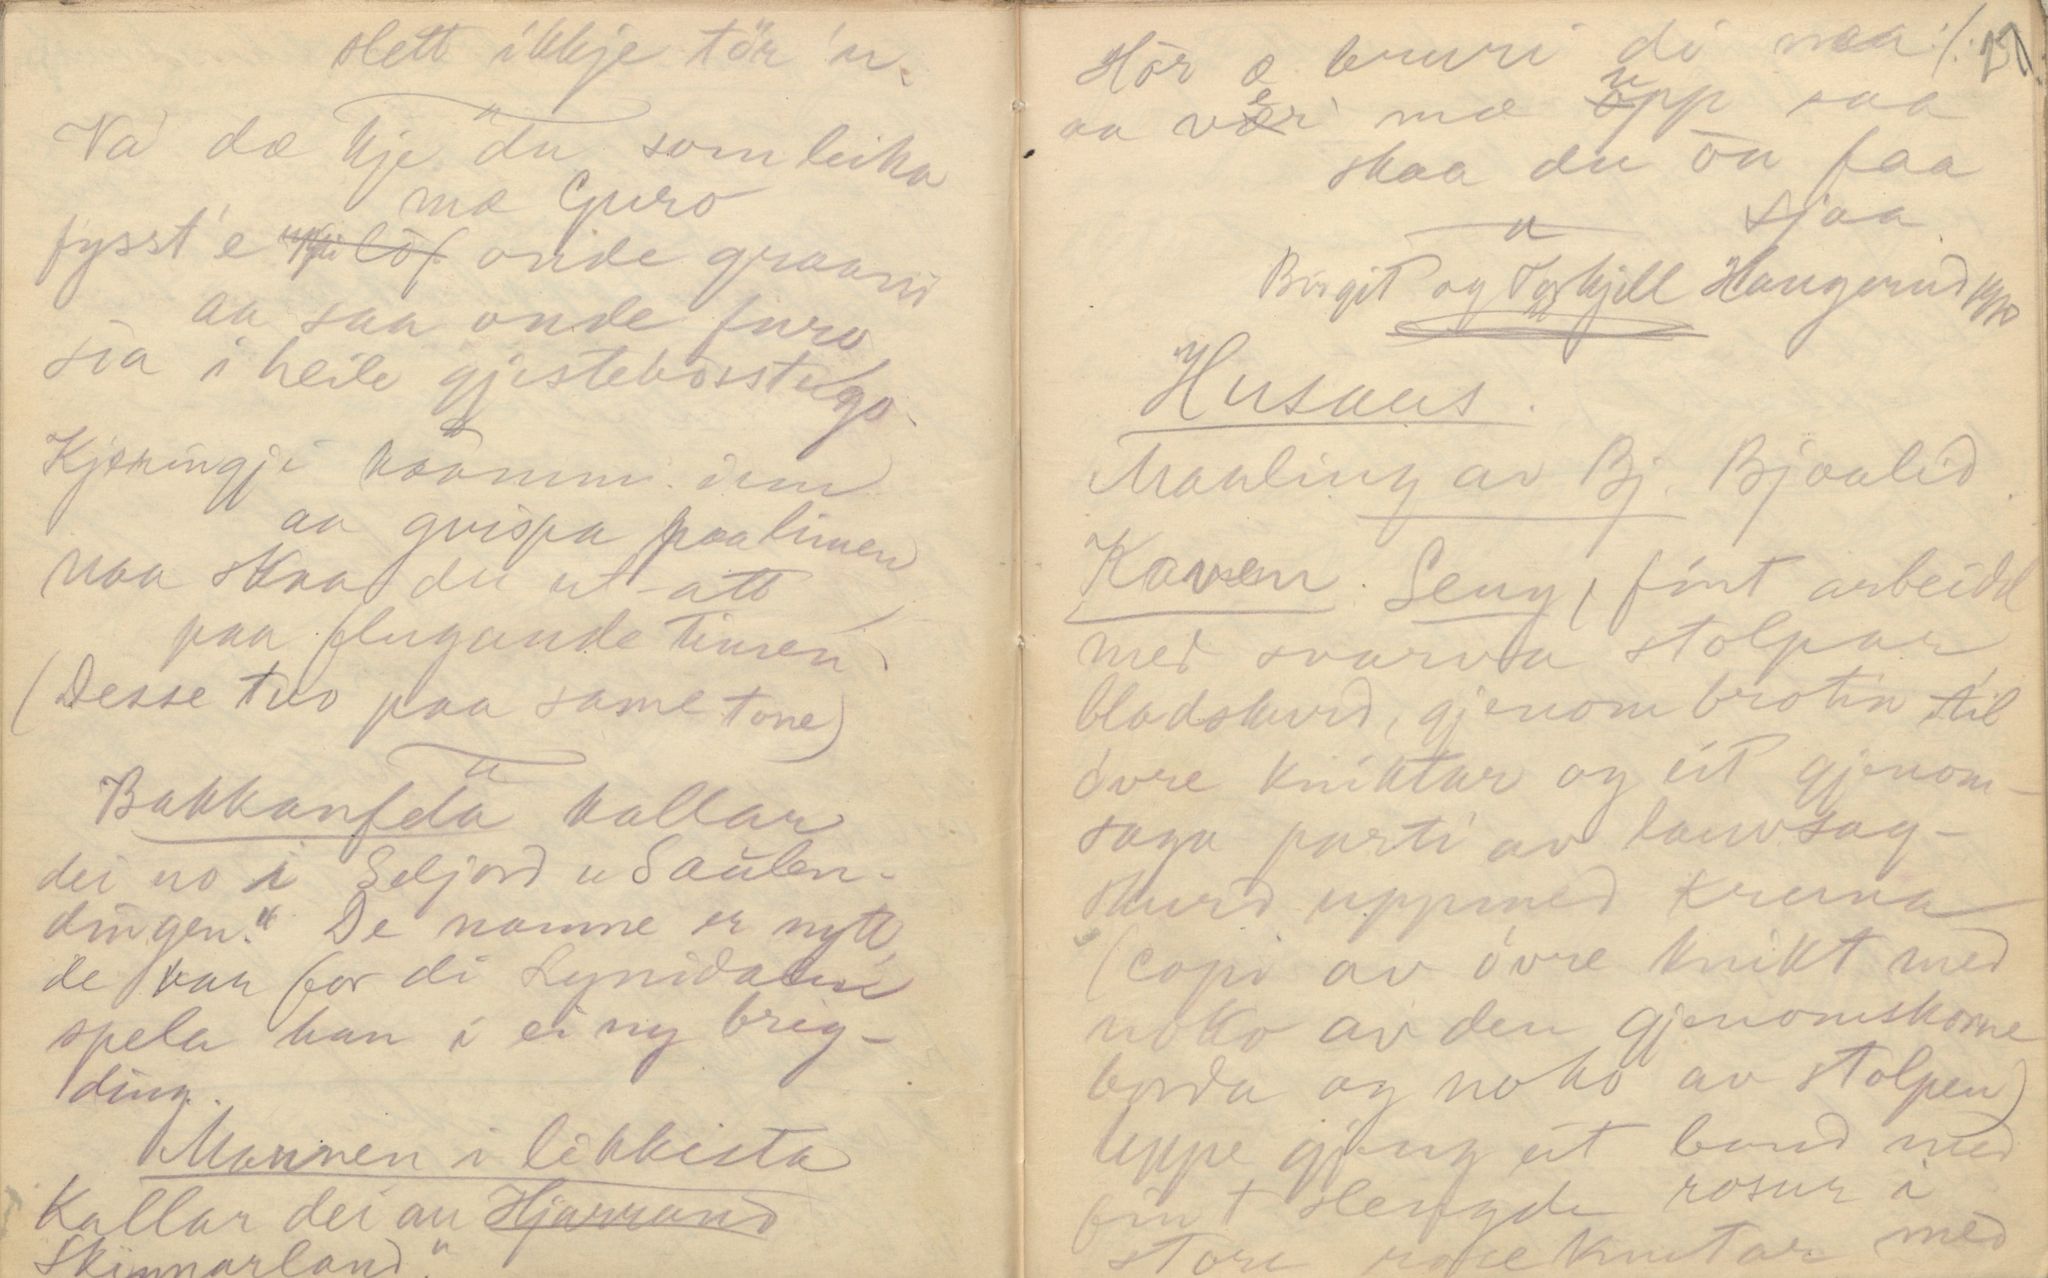 slett ikkje tör 'u.
Va dæ kje du som leika
mæ Guro
fysst' e onde graani
aa saa onde furo
sia i heile gjestebösstugo.
Kjæringji kaamm inn
aa gvispa paa limen
naa skaa du ut att
paa flugande timen
(Desse tvo paa same tone)
Bakkanfela kallar
dei no i Seljord "Saulen-
dingen." De namne er nytt
de kan for di
spela han i ei ny brig-
ding.
Mannen i likkista
Kallar dei au Hjarrand
Skinnarland."
Hör æ bruri di naa :/: 27.
aa veri mæ upp saa
skaa du ön faa
sjaa
Birgit og Torkjell Haugerud
Husaas.
Maaling av Bj. Bjaalid.
Kaven. Seng, fint arbeidd
med svarva stolpar,
bladskurd, gjenombrotin til
övre kniktar og eit gjenom-
saga parti av lauvsag-
skurd uppmed kruna
(copi av övre knikt med
noko av den gjenomskorne
borda og noko av stolpen)
Uppe gjeng eit band med
fint slengde rosur i
store roseknutar med